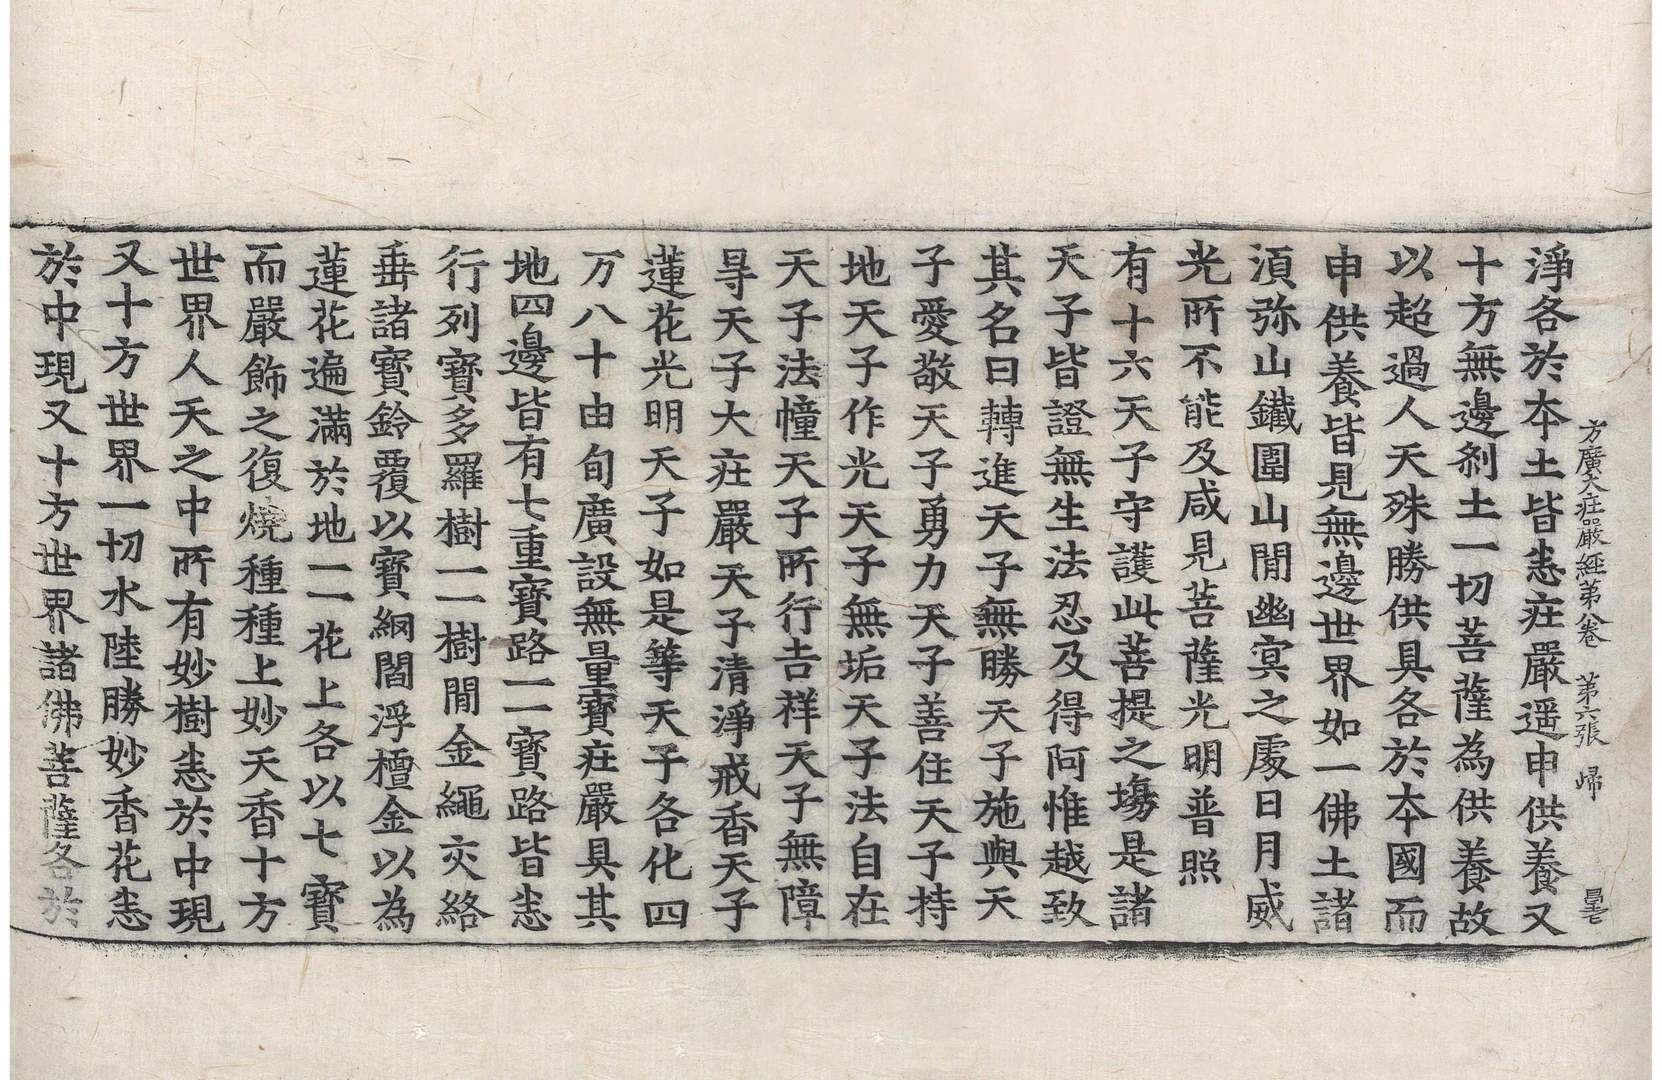 方廣大庄嚴經第八卷 第六張 歸
淨各於本土皆悉庄嚴遥申供養又
十方無邊剎土一切菩薩為供養故
以超過人天殊勝供具各於本國而
申供養皆見無邊世界如一佛土諸
湏弥山鐵圍山閒幽㝠之處日月威
光所不能及咸見菩薩光明普照
有十六天子守護此菩提之場是諸
天子皆證無生法忍及得阿惟越致
其名曰轉進天子無勝天子施與天
子愛敬天子勇力天子善住天子持
地天子作光天子無垢天子法自在
天子法幢天子所行吉祥天子無障
㝵天子大庄嚴天子清淨戒香天子
蓮花光明天子如是等天子各化四
万八十由旬廣設無量寶庄嚴具其
地四邊皆有七重寶路一一寶路皆悉
行列寶多羅樹一一樹閒金繩交絡
垂諸寶鈴覆以寶網閻浮檀金以為
蓮花遍滿於地一一花上各以七寶
而嚴飾之復燒種種上妙天香十方
世界人天之中所有妙樹悉於中現
又十方世界一切水陸勝妙香花悉
於中現又十方世界諸佛菩薩各於